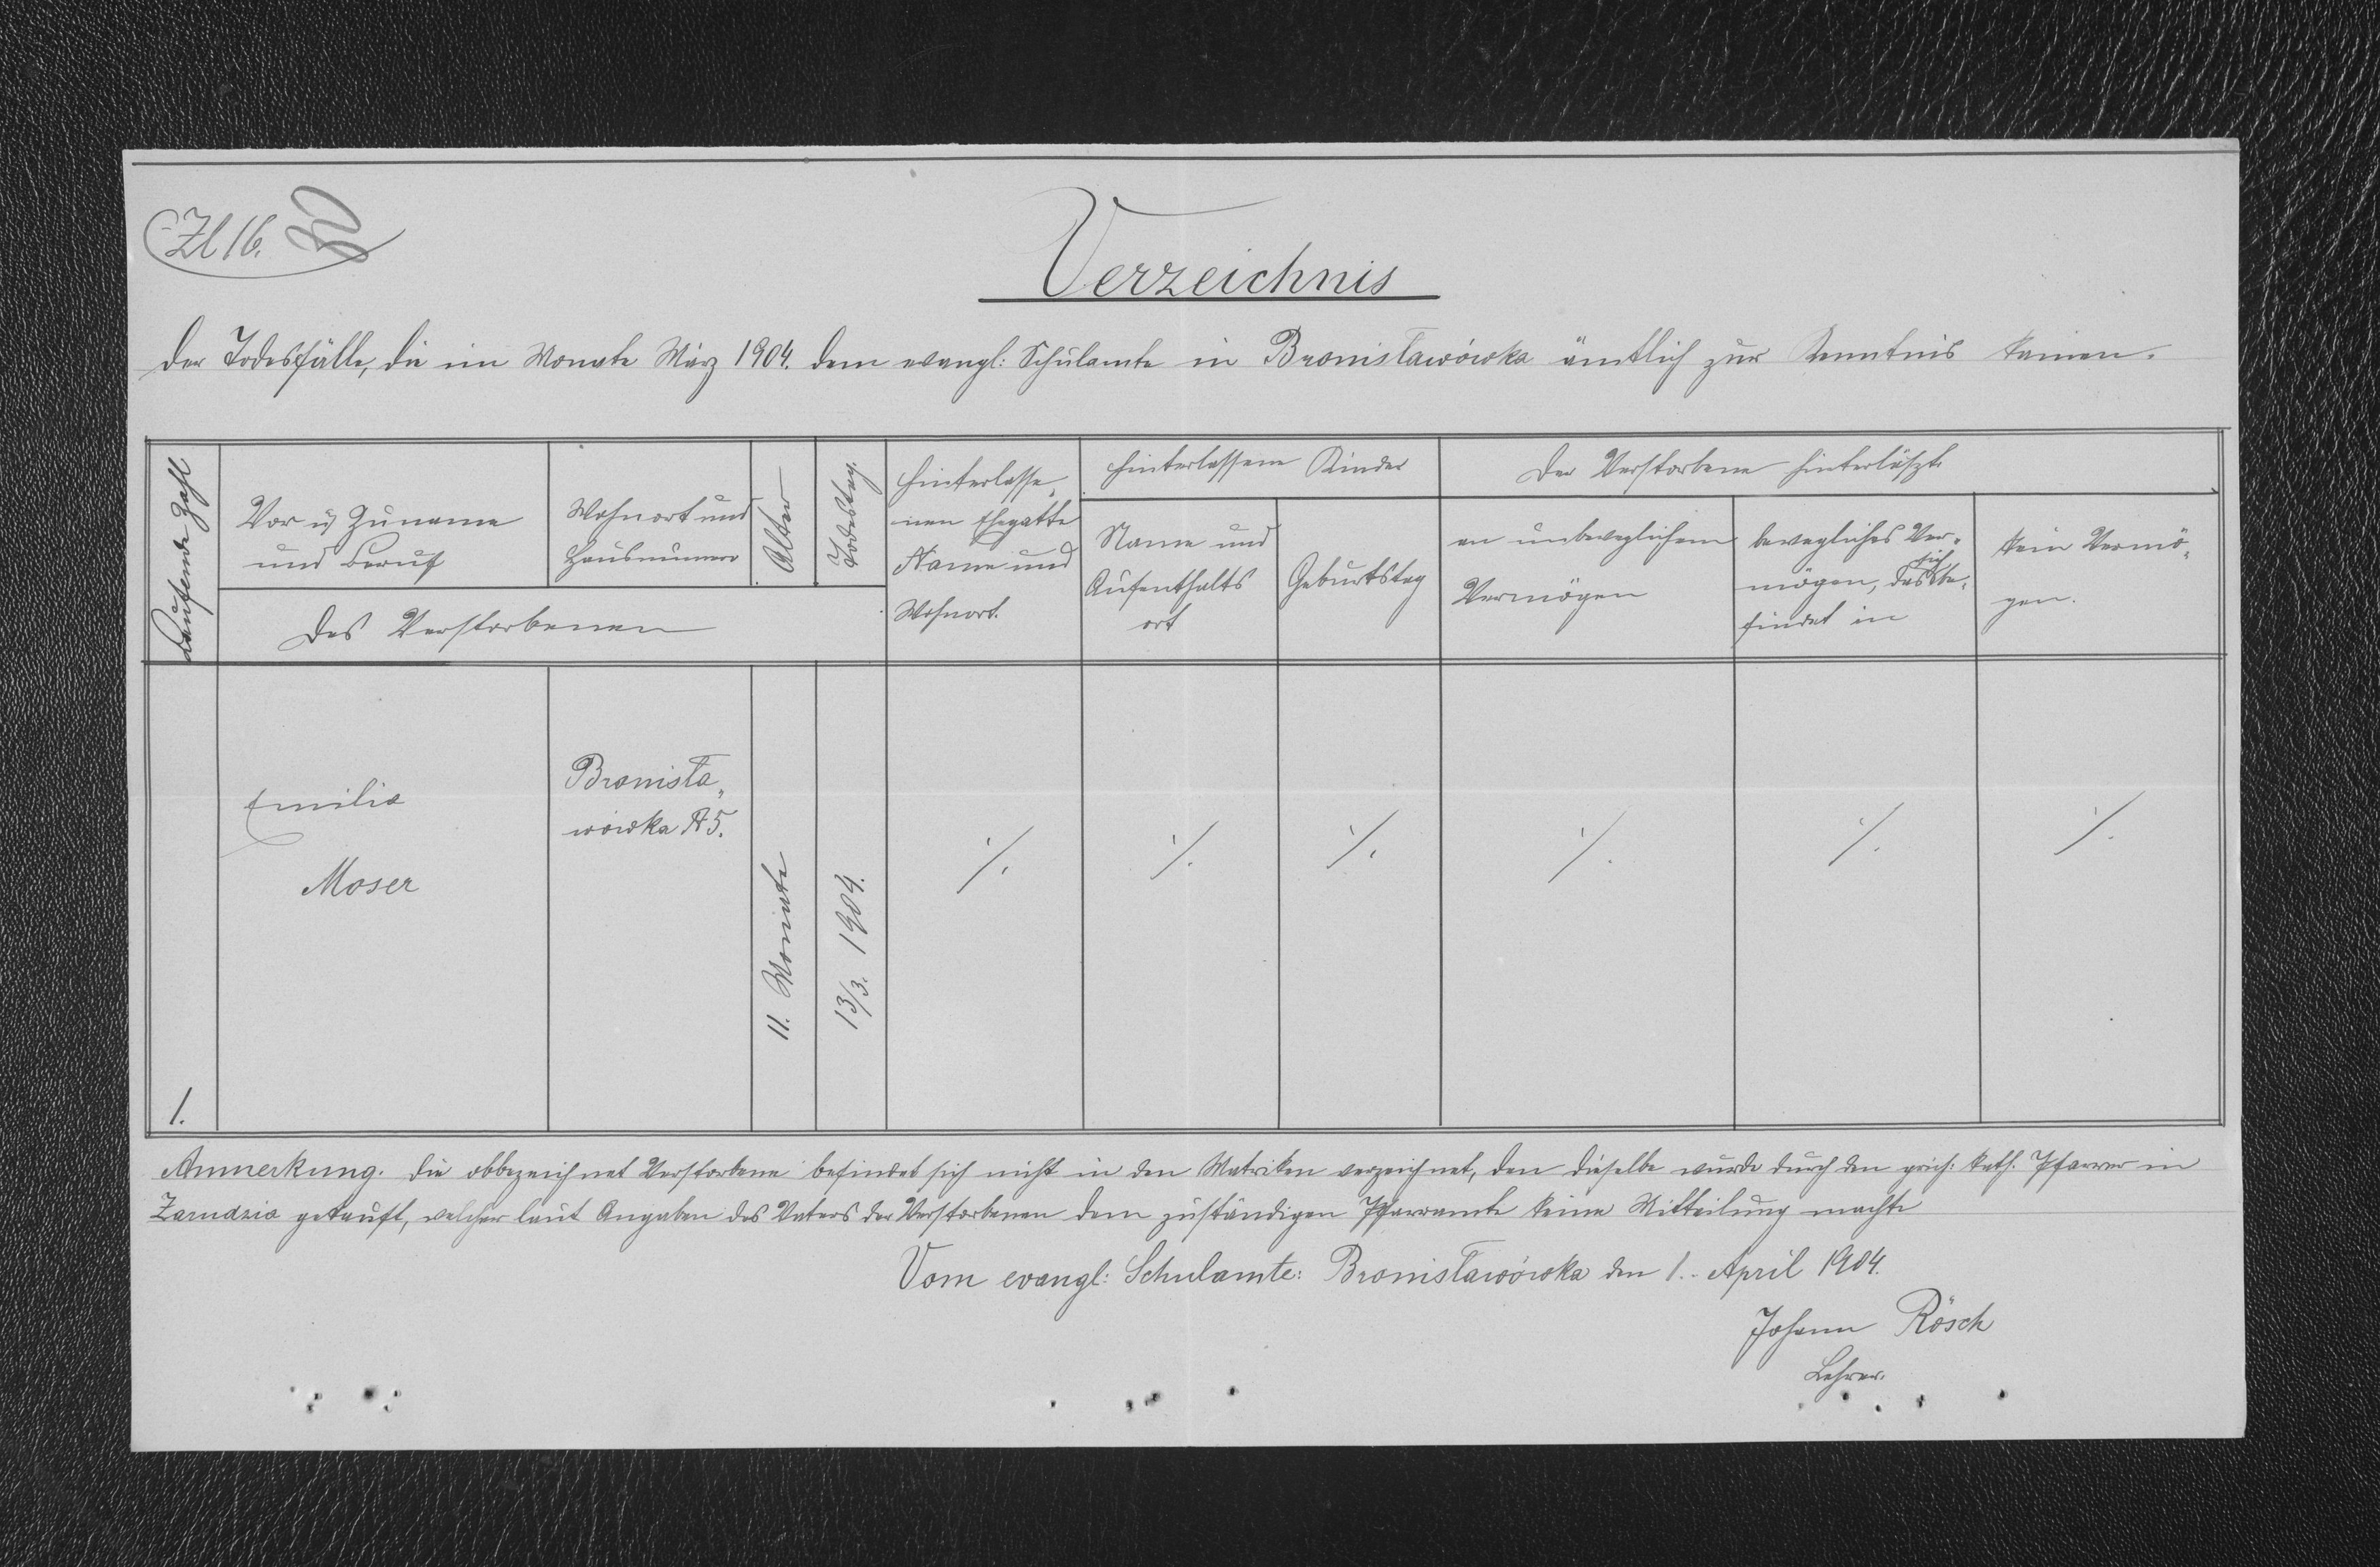 Zl 16.
Verzeichnis
der Todesfälle, die im Monate März 1904. dem evangl: Schulamte in Bronisławówka ämtlich zur Kenntnis kamen.
Laufende Zahl
Vor u Zuname
und Beruf
Wohnort und
Hausnummer
Alter
Todestag.
des Verstorbenen
Hinterlasse„
nen Ehegatte
Name und
Wohnort.
Hinterlassene Kinder
Name und
Aufenthalts
ort
Geburtstag
Der Verstorbene hinterläszt
an unbeweglichem
Vermögen
bewegliches Ver„
mögen, das sich be„
findet in
kein Vermö„
gen.
1.
Emilia
Moser
Bronisła„
wówka № 5.
11. Monate
13/3. 1904.
·/. ·/. ·/. ·/. ·/. ·/.
Anmerkung. Die obbezeichnet Verstorbene befindet sich nicht in den Matriken verzeichnet, den dieselbe wurde durch den grich: kath. Pfarrer in
Zarudzia getauft, welcher laut Angaben des Vaters der Verstorbenen dem zuständigen Pfarramte keine Mitteilung machte
Vom evangl: Schulamte: Bronisławówka den 1. April 1904.
Johann Rösch
Lehrer.